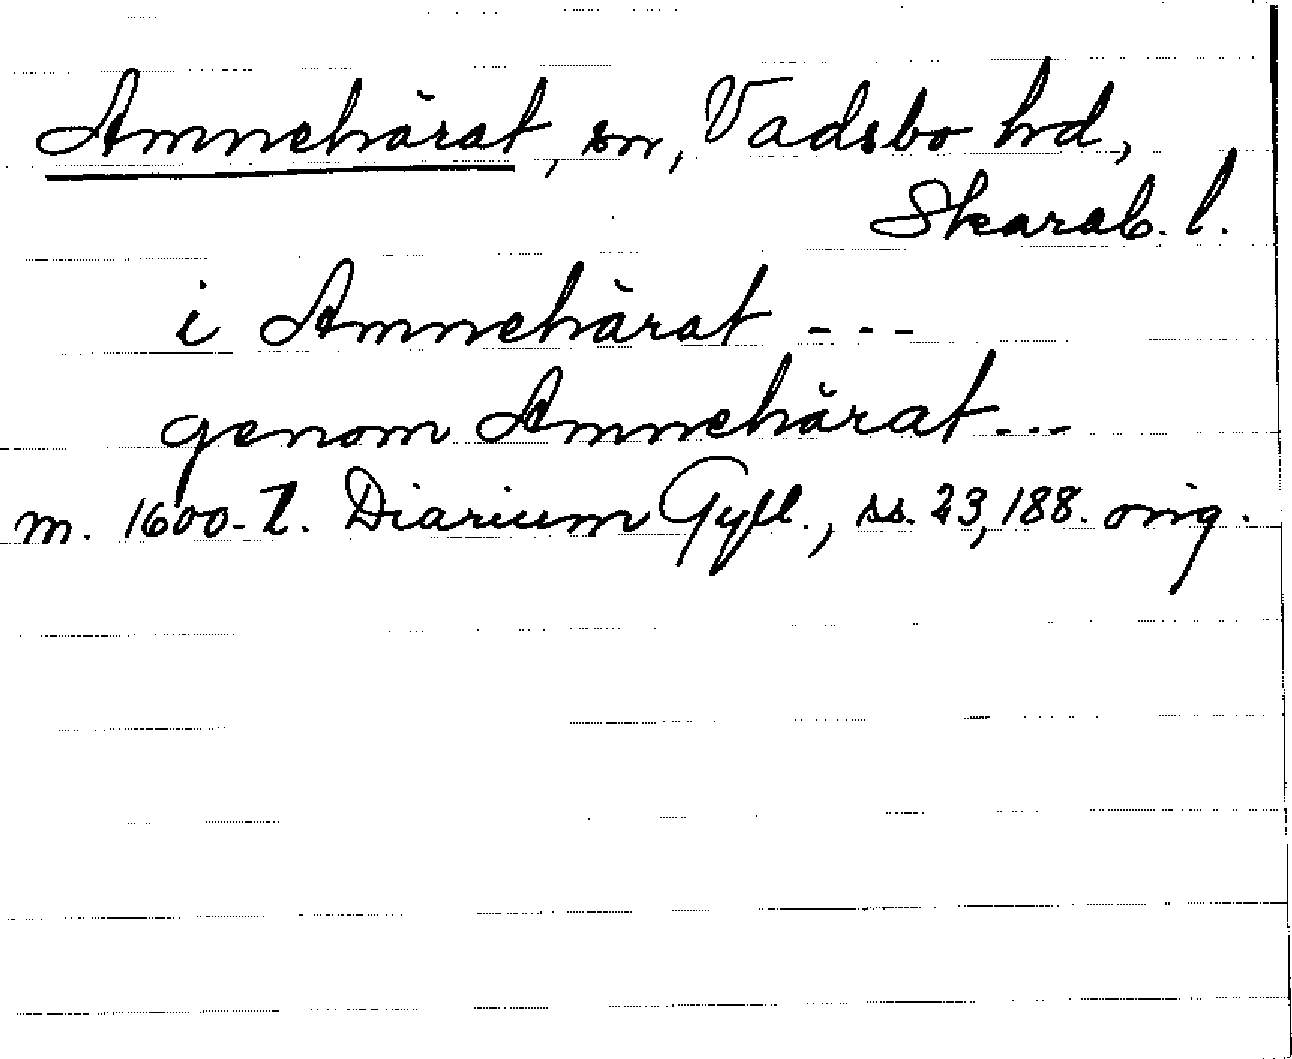 Amnehärat, sn, Vadsbo hd,
Skarab. l.
i Amnehärat ---
genom Amnehärat ---
m. 1600-t. Diarium Gyll., ss. 23, 188. orig.